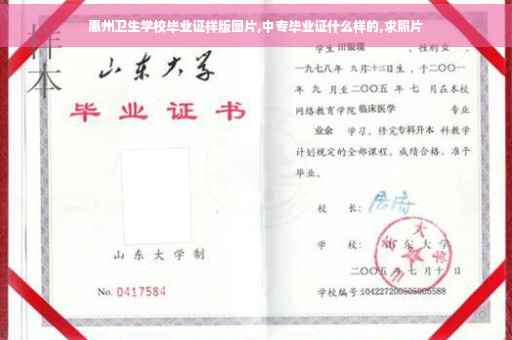 惠州卫生学校毕业证样版图片,中专毕业证什么样的,求照片
样本
山东大学
毕业证书
山东大学制
No. 0417584
学生 田银瑞 , 性别 女 ,
一九七八年 九月十三日生, 于二〇〇一
年 九 月至二〇〇五 年 七 月在本校
网络教育学院 临床医学 专业
业余 学习, 修完 专科升本 科教学
计划规定的全部课程, 成绩合格, 准予
毕业。
校 长:
学 校: 山东大学
二〇〇五 年 七 月 十 日
学校编号:104227200505005588